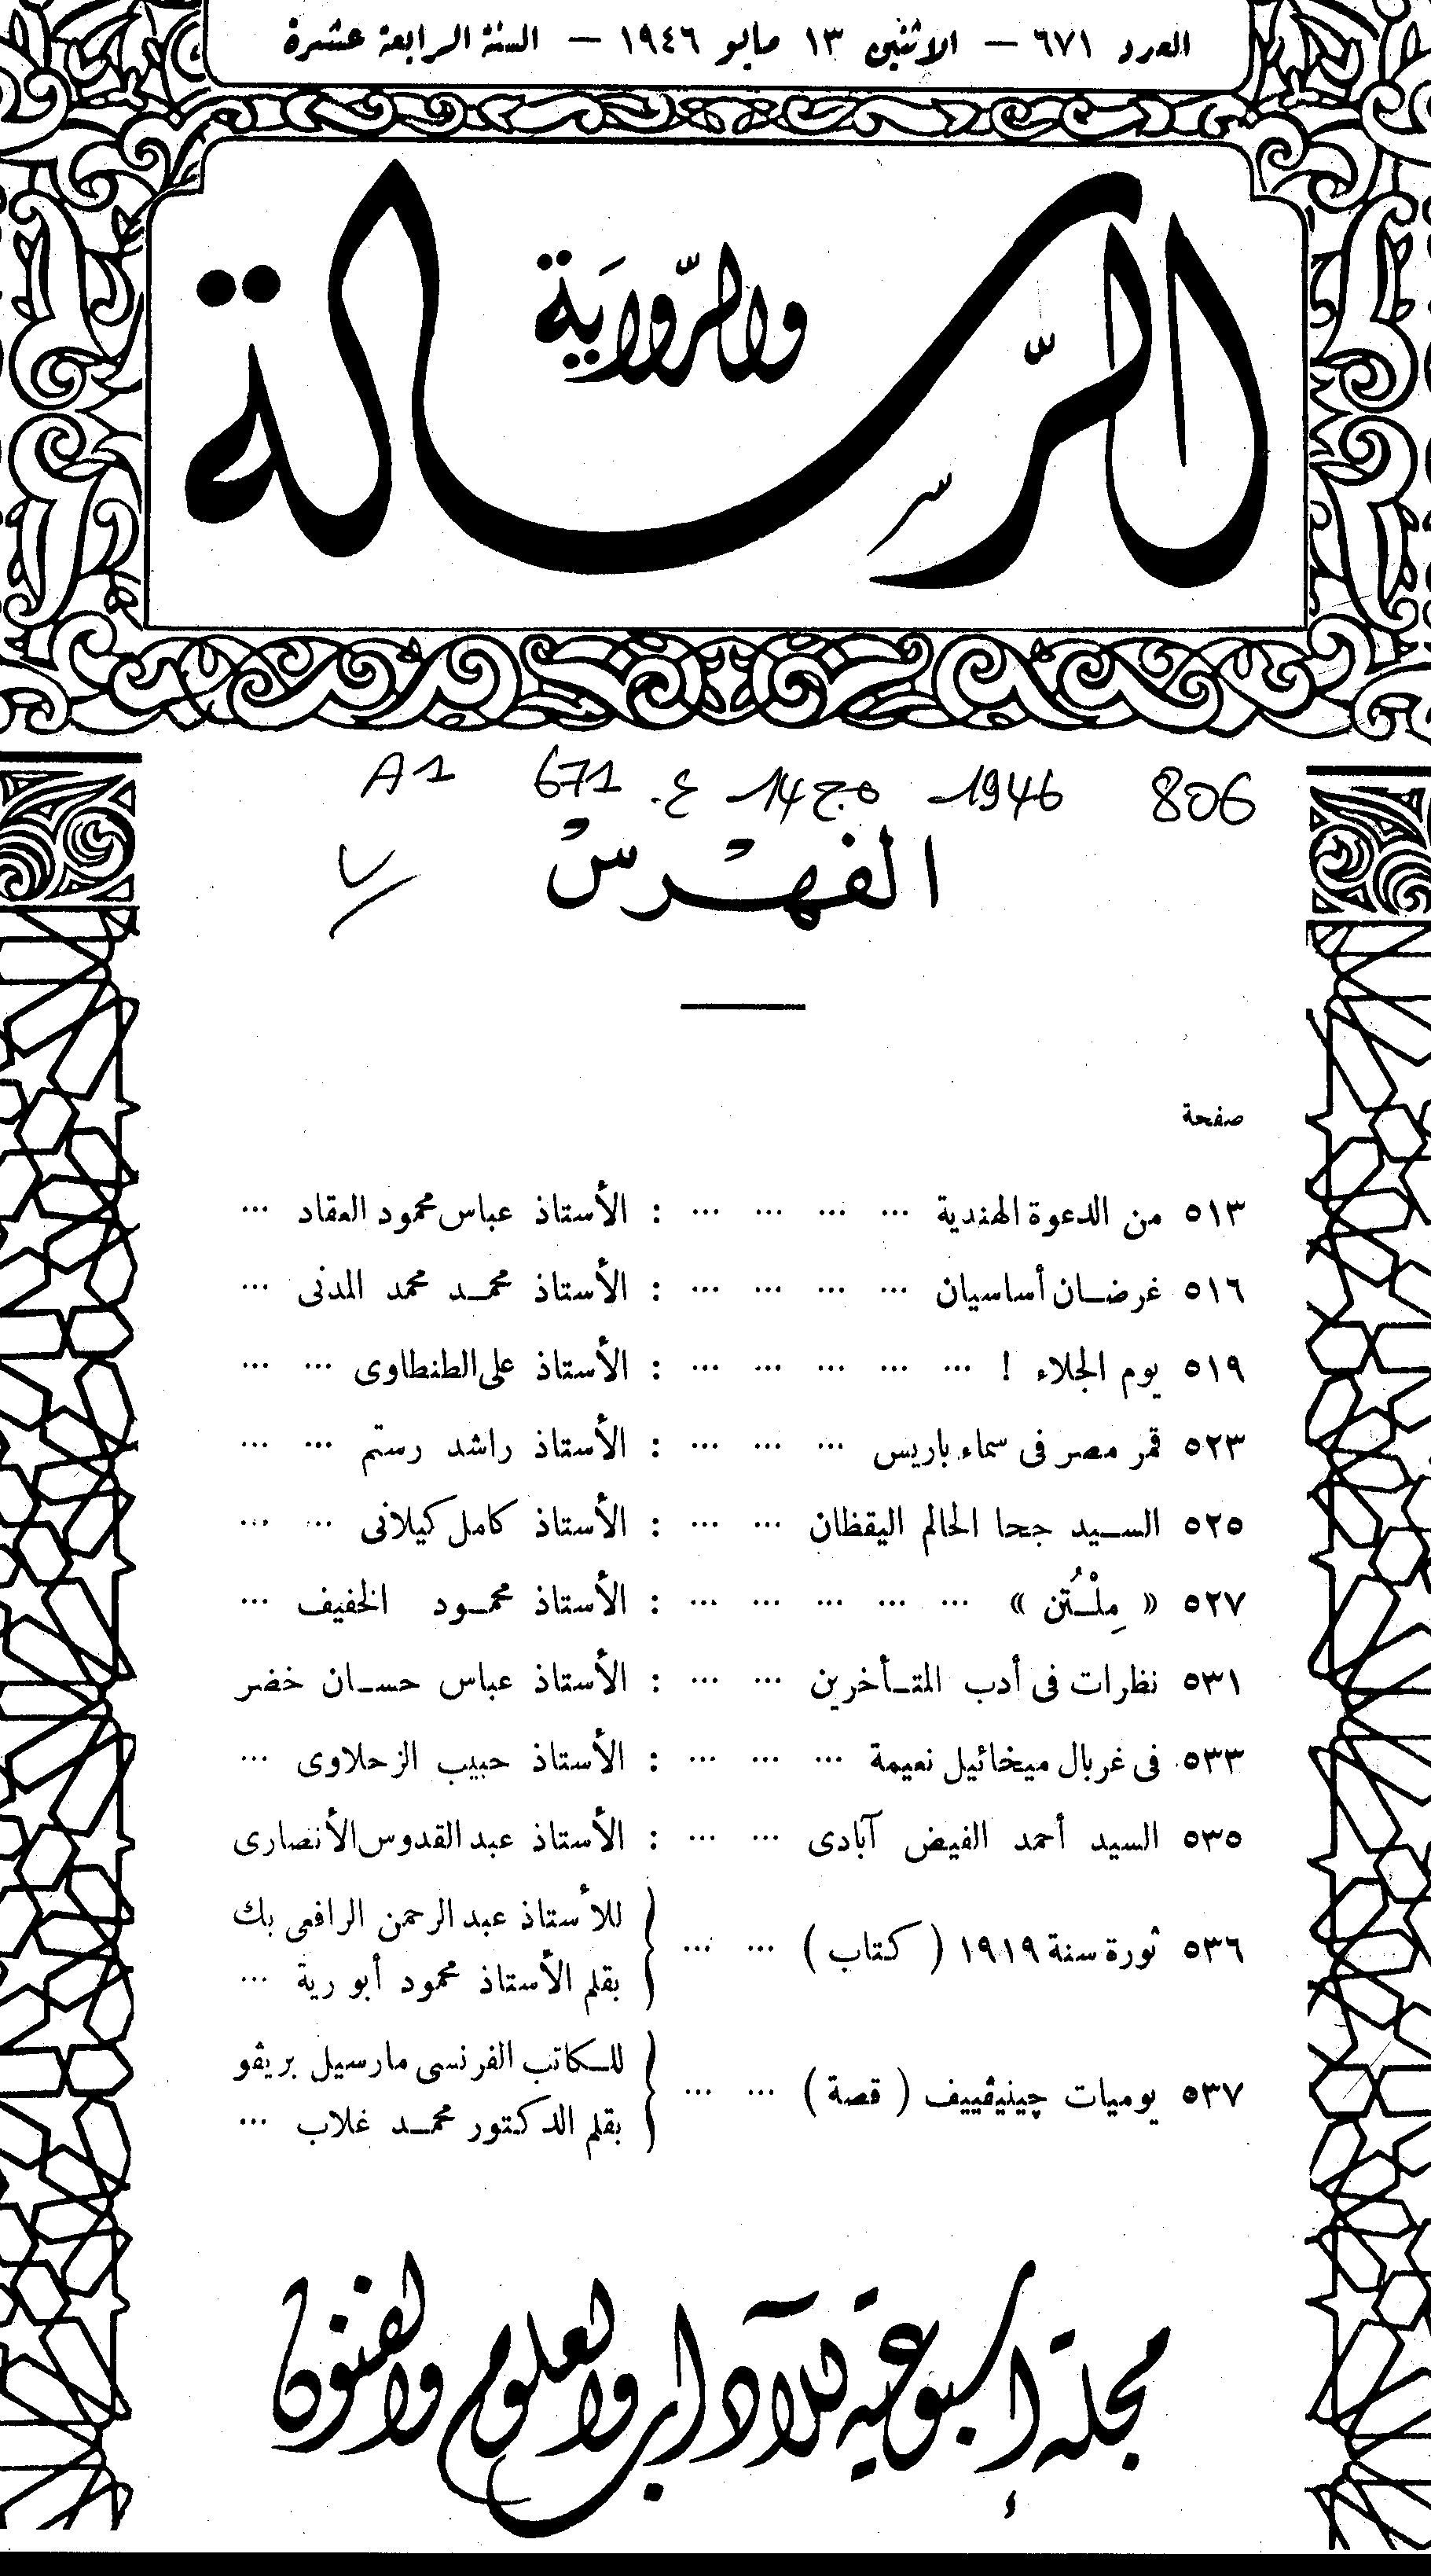 العدد ٦٧١ — الاثنين ١٣ مايو ١٩٤٦ — السنة الرابعة عشرة
الرّسالة
والرّواية
A1 671 ع. 14 مج 1946 806
الفهرس
صفحة
٥١٣ من الدعوة الهندية ... ... ... ... : الأستاذ عباس محمود العقاد ...
٥١٦ غرضـان أساسيان ... ... ... ... : الأستاذ محمـد محمد المدنى ...
٥١٩ يوم الجلاء ! ... ... ... ... ... : الأستاذ على الطنطاوى ... ...
٥٢٣ قمر مصر فى سماء باريس ... ... ... : الأستاذ راشد رستم ... ...
٥٢٥ الســيد جحا الحالم اليقظان ... ... : الأستاذ كامل كيلانى ... ...
٥٢٧ « مِلْـتُن » ... ... ... ... ... : الأستاذ محمـود الخفيف ...
٥٣١ نظرات فى أدب المتـأخرين ... ... : الأستاذ عباس حسـان خضر
٥٣٣ فى غربال ميخائيل نعيمة ... ... ... : الأستاذ حبيب الزحلاوى ...
٥٣٥ السيد أحمد الفيض آبادى ... ... : الأستاذ عبد القدوس الأنصارى
٥٣٦ ثورة سنة ١٩١٩ ( كتاب ) ... ... { للأستاذ عبد الرحمن الرافعى بك
بقلم الأستاذ محمود أبو رية ...
٥٣٧ يوميات چينيڤييف ( قصة ) ... ... { للـكاتب الفرنسى مارسيل بريڤو
بقلم الدكتور محمـد غلاب ...
مجلة أسبوعية للآداب والعلوم والفنون